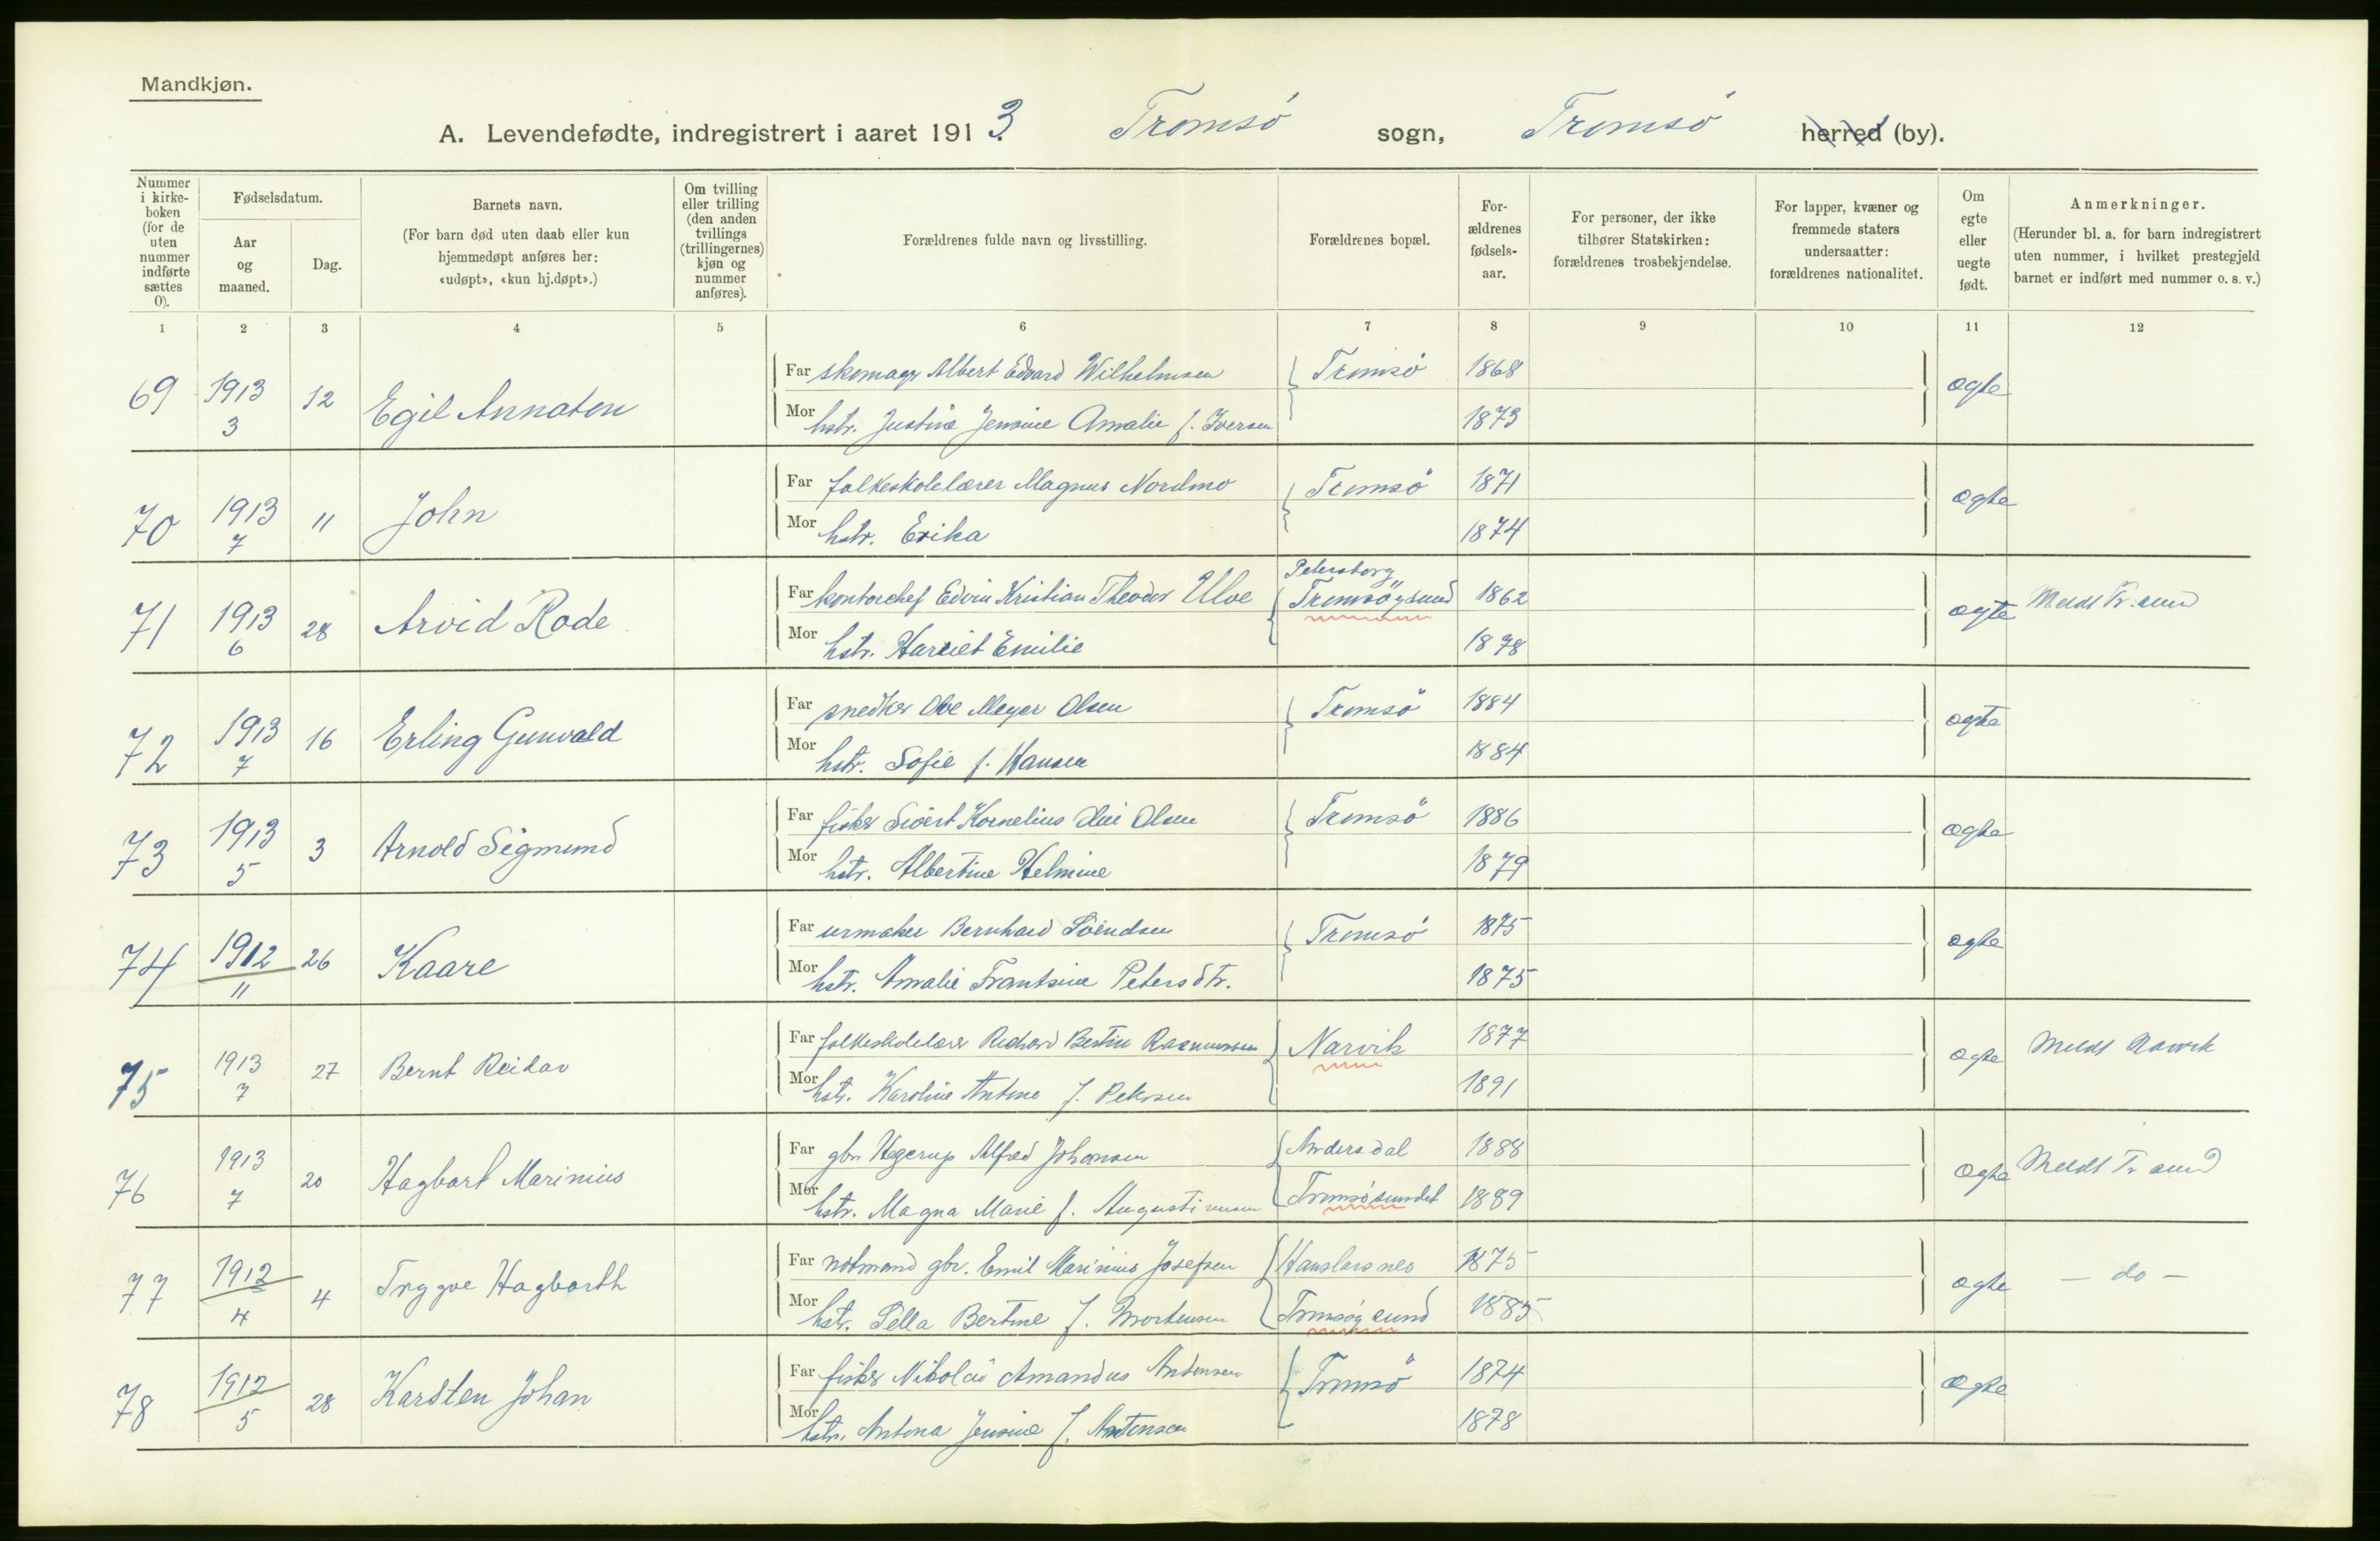 Mandkjøn.
A. Levendefødte, indregistrert i aaret 1913. Tromsö sogn, Tromsö herred (by).
Nummer i kirke-boken (for de uten nummer indførte sættes 0).
Fødselsdatum.
Aar og maaned.
Dag.
Barnets navn.
(For barn død uten daab eller kun hjemmedøpt anføres her: «udøpt», «kun hj.døpt».)
Om tvilling eller trilling (den anden tvillings (trillingernes) kjøn og nummer anføres).
Forældrenes fulde navn og livsstilling.
Forældrenes bopæl.
For-ældrenes fødsels-aar.
For personer, der ikke tilhører Statskirken: forældrenes trosbekjendelse.
For lapper, kvæner og fremmede staters undersaatter: forældrenes nationalitet.
Om egte eller uegte født.
Anmerkninger.
(Herunder bl. a. for barn indregistrert uten nummer, i hvilket prestegjeld barnet er indført med nummer o. s. v.)
1 2 3 4 5 6 7 8 9 10 11 12
69 1913 3 12 Egil Annaton
Far skomager Albert Edvard Wilhelmsen Tromsö 1868 ægte
Mor hstr. Justine Jensine Amalie f. Iversen 1873
70 1913 7 " John
Far folkeskolelærer Magnus Nordmo Tromsö 1871 ægte
Mor hstr. Erika 1874
71 1913 6 28 Arvid Rode
Far kontorchef Edvin Kristian Theodor Ulve Petersborg Tromsöysund 1862 ægte Meldt Tr.sund
Mor hstr. Harriet Emilie 1878
72 1913 7 16 Erling Gunvald
Far snedker Ole Meyer Olsen Tromsö 1884 ægte
Mor hstr. Sofie f. Hansen 1884
73 1913 5 3 Arnold Sigmund
Far fisker Sivert Kornelius Olai Olsen Tromsö 1886 ægte
Mor hstr. Albertine Helmine 1879
74 1912 11 26 Kaare
Far urmaker Bernhard Svendsen Tromsö 1875 ægte
Mor hstr. Amalie Frantsine Petersdtr. 1875
75 1913 7 27 Bernt Reidar
Far folkeskolelærer Richard Bertin Rasmussen Narvik 1877 ægte Meldt Narvik
Mor hstr. Karoline Antone f. Petersen 1891
76 1913 7 20 Hagbart Marinius
Far gbr. Hegerup Alfred Johansen Andersdal 1888 ægte Meldt Tr sund
Mor hstr. Magna Marie f. Augustinusen Tromsösundet 1889
77 1912 4 4 Tryggve Hagbarth
Far notmand gbr. Emil Marinius Josefsen Hanslarsnes 1875 ægte — do —
Mor hstr. Pella Bertine f. Mortensen Tromsöysund 1885
78 1912 5 28 Karsten Johan
Far fisker Nikolai Amandus Antonsen Tromsö 1874 ægte
Mor hstr. Antona Jensine f. Antonsen 1878